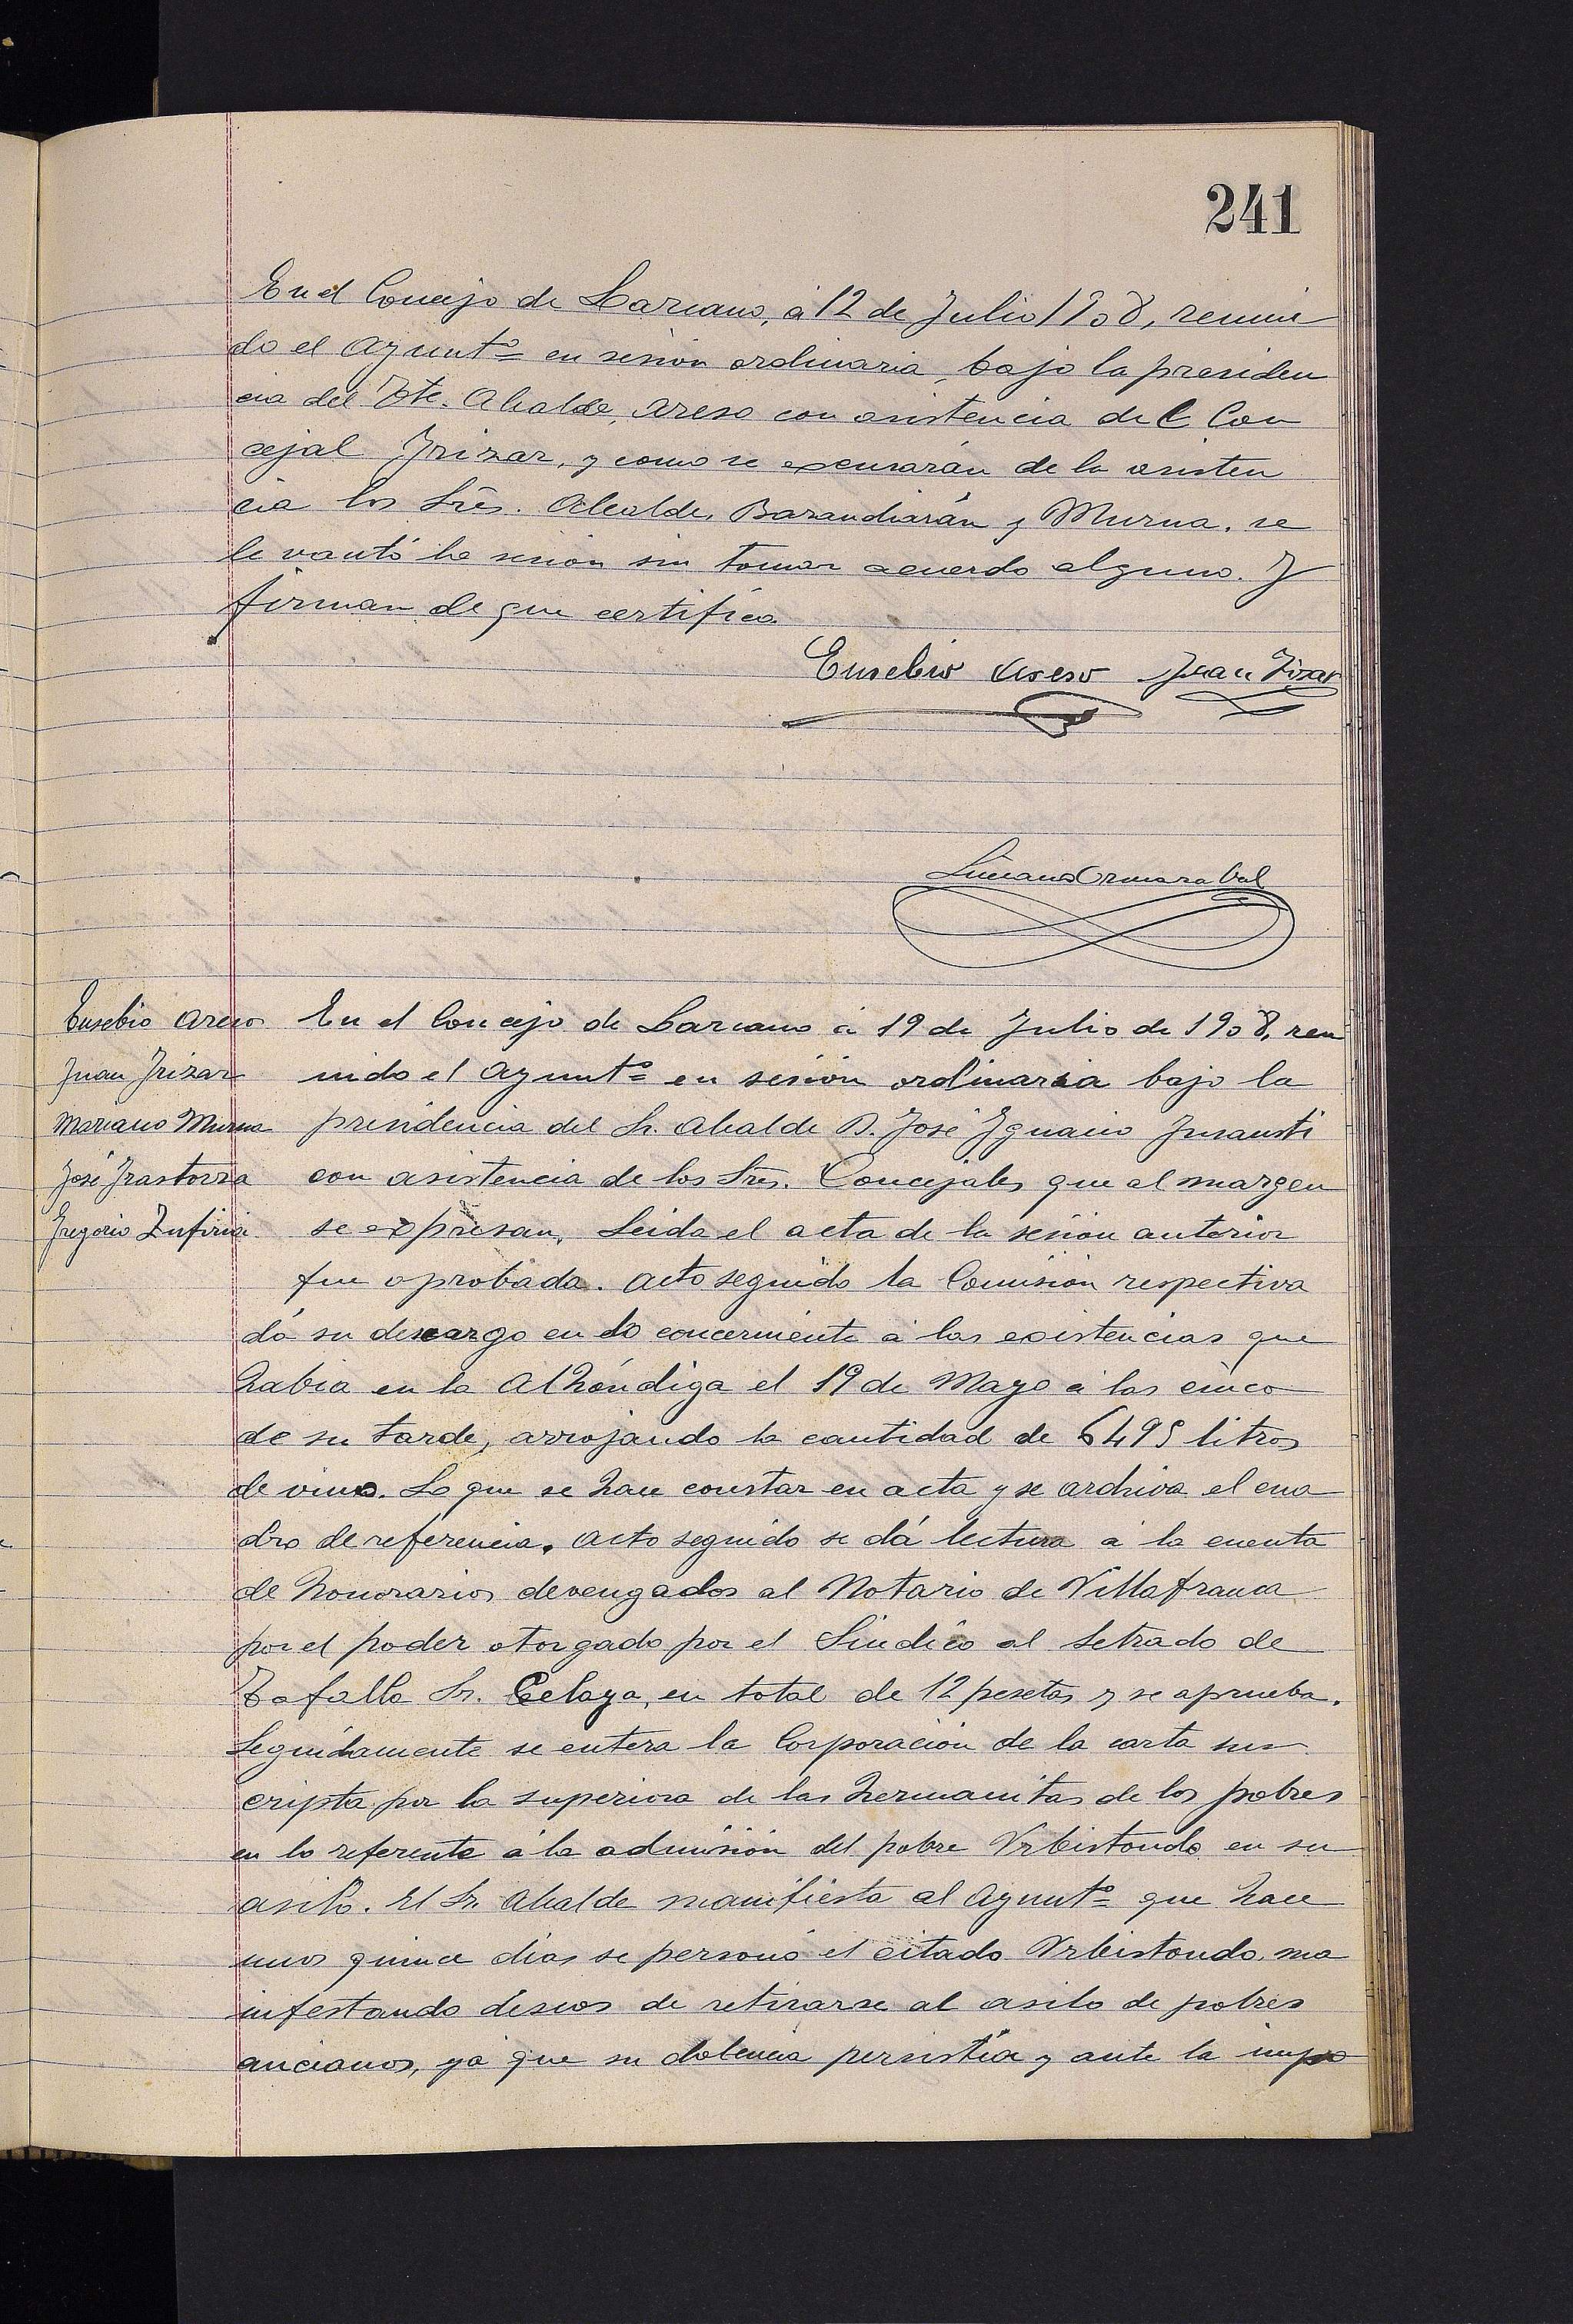 241
En el Concejo de Lazcano, á 12 de Julio 1908, reuni
do el Ayuntº en sesion ordinaria, bajo la presiden
cia del Tte. Alcalde, Areso con asistencia del Con
cejal Irizar, y como se excusarán de la asisten
cia los Srês. Alcalde, Barandiarán y Murua, se
levantó la sesion sin tomar acuerdo alguno. Y
firman de que certifico.
Eusebio Areso Juan Irizar
Luciano Ormazabal
Eusebio Areso
Juan Irizar
Mariano Murua
José Irastorza
Gregorio Zufiria
En el Concejo de Lazcano á 19 de Julio de 1908, reu
nido el Ayuntº en sesión ordinaria bajo la
presidencia del Sr. Alcalde D. José Ygnacio Insausti
con asistencia de los Sres. Concejales que al margen
se expresan, Leida el acta de la sesión anterior
fue aprobada. Acto seguido la Comisión respectiva
dá su descargo en lo concerniente á las existencias que
habia en la Alhóndiga el 19 de Mayo á las cinco
de su tarde, arrojando la cantidad de 6495 litros
de vino. Lo que se hace constar en acta y se archiva el cua
dro de referencia. Acto seguido se dá lectura á la cuenta
de honorarios devengados al Notario de Villafranca
por el poder otorgado por el Síndico al Letrado de
Tafalla Sr. Celaya, en total de 12 pesetas y se aprueba.
Seguidamente se entera la Corporación de la carta sus
cripta por la superiora de las hermanitas de los pobres
en lo referente á la admisión del pobre Urbistondo en su
asilo. El Sr. Alcalde manifiesta al Ayuntº que hace
unos quince días se personó el citado Urbistondo, ma
nifestando deseos de retirarse al asilo de pobres
ancianos, ya que su dolencia persistía y ante la impo